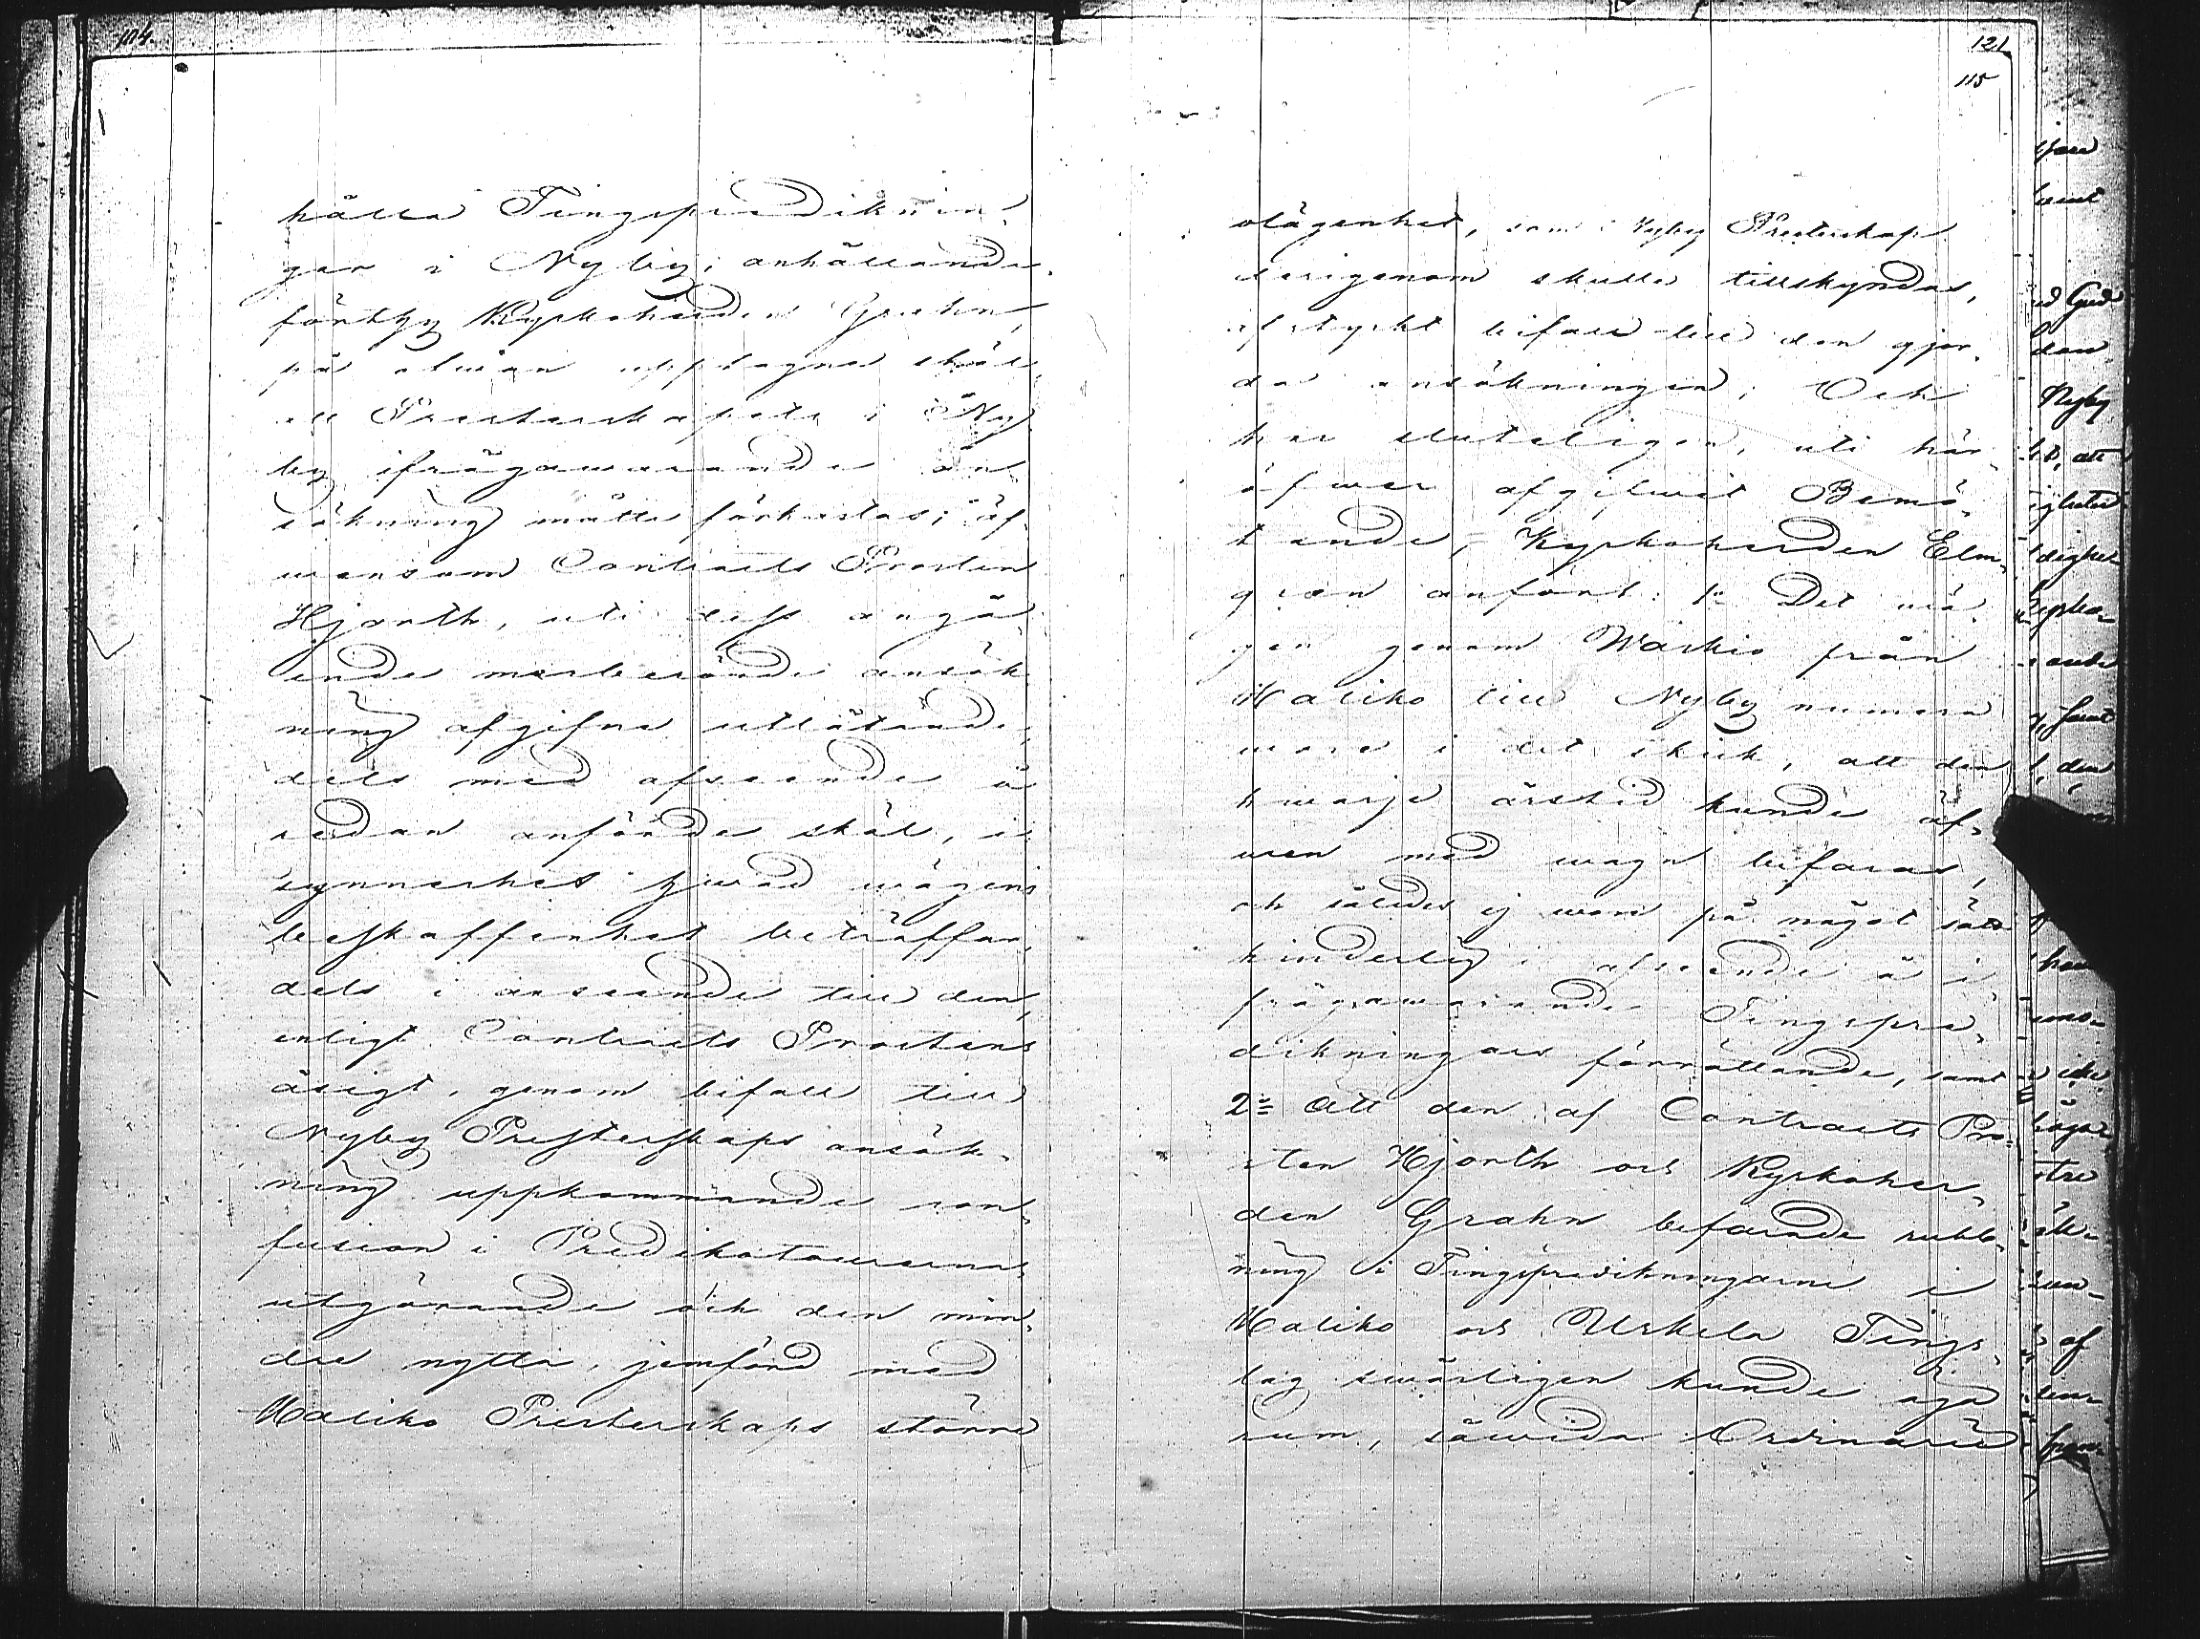 104.
hålla Tingsprediknin-
gar i Nyby; anhållande
förthy Kyrkoherden Grahn,
på ofwan upptagne skäl,
att Presterskapets i Ny-
by ifrågawarande an-
sökning måtte förkastas; äf-
wensom Contracts Prosten
Hjorth, uti dess angå-
ende merberörde ansök-
ning afgifne utlåtande,
dels med afseende å
redan anförde skäl, i
synnerhet hwad wägens
beskaffenhet beträffar,
dels i anseende till den,
enligt Contracts Prostens
åsigt, genom bifall till
Nyby Presterskaps ansök-
ning uppkommande con-
fusion i Predikoturernas
utgörande och den min-
dre nytta, jemförd med
Haliko Presterskaps större
121
115
olägenhet, som i Nyby Presterskap
derigenom skulle tillskyndas,
afstyrkt bifall till den gjor-
da ansökningen; Och
har slutligen, uti här-
öfwer afgifwit Bemö-
tande, Kyrkoherden Elm-
gren anfört: 1o Det wä-
gen genom Waskio från
Haliko till Nyby numera
wore i det skick, att den
hwarje årstid kunde äf-
wen med wagn befaras,
och således ej wore på något sätt
hinderlig i afseende å i
frågawarande Tingspre-
dikningars förrättande, samt
2o Att den af Contracts Pro-
sten Hjorth och Kyrkoher-
den Grahn befarade rubb-
ning i Tingspredikningarne i
Haliko och Uskela Tings-
lag swårligen kunde äga
rum, såwida Ordinarie